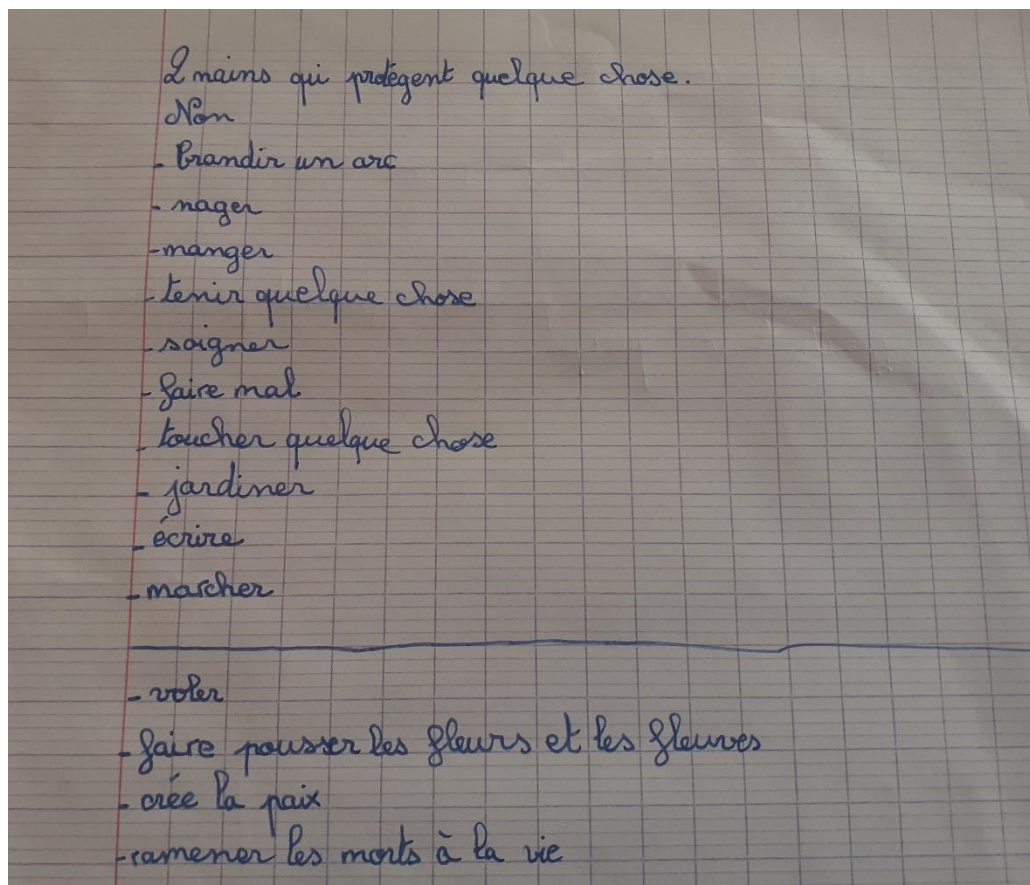 2 mains qui protègent quelque chose.
Non
- brandir un arc
- nager
- manger
- tenir quelque chose
- soigner
- faire mal
- toucher quelque chose
- jardiner
- écrire
- marcher
- voler
- faire pousser les fleurs et les fleuves
- crée la paix
- ramener les morts à la vie